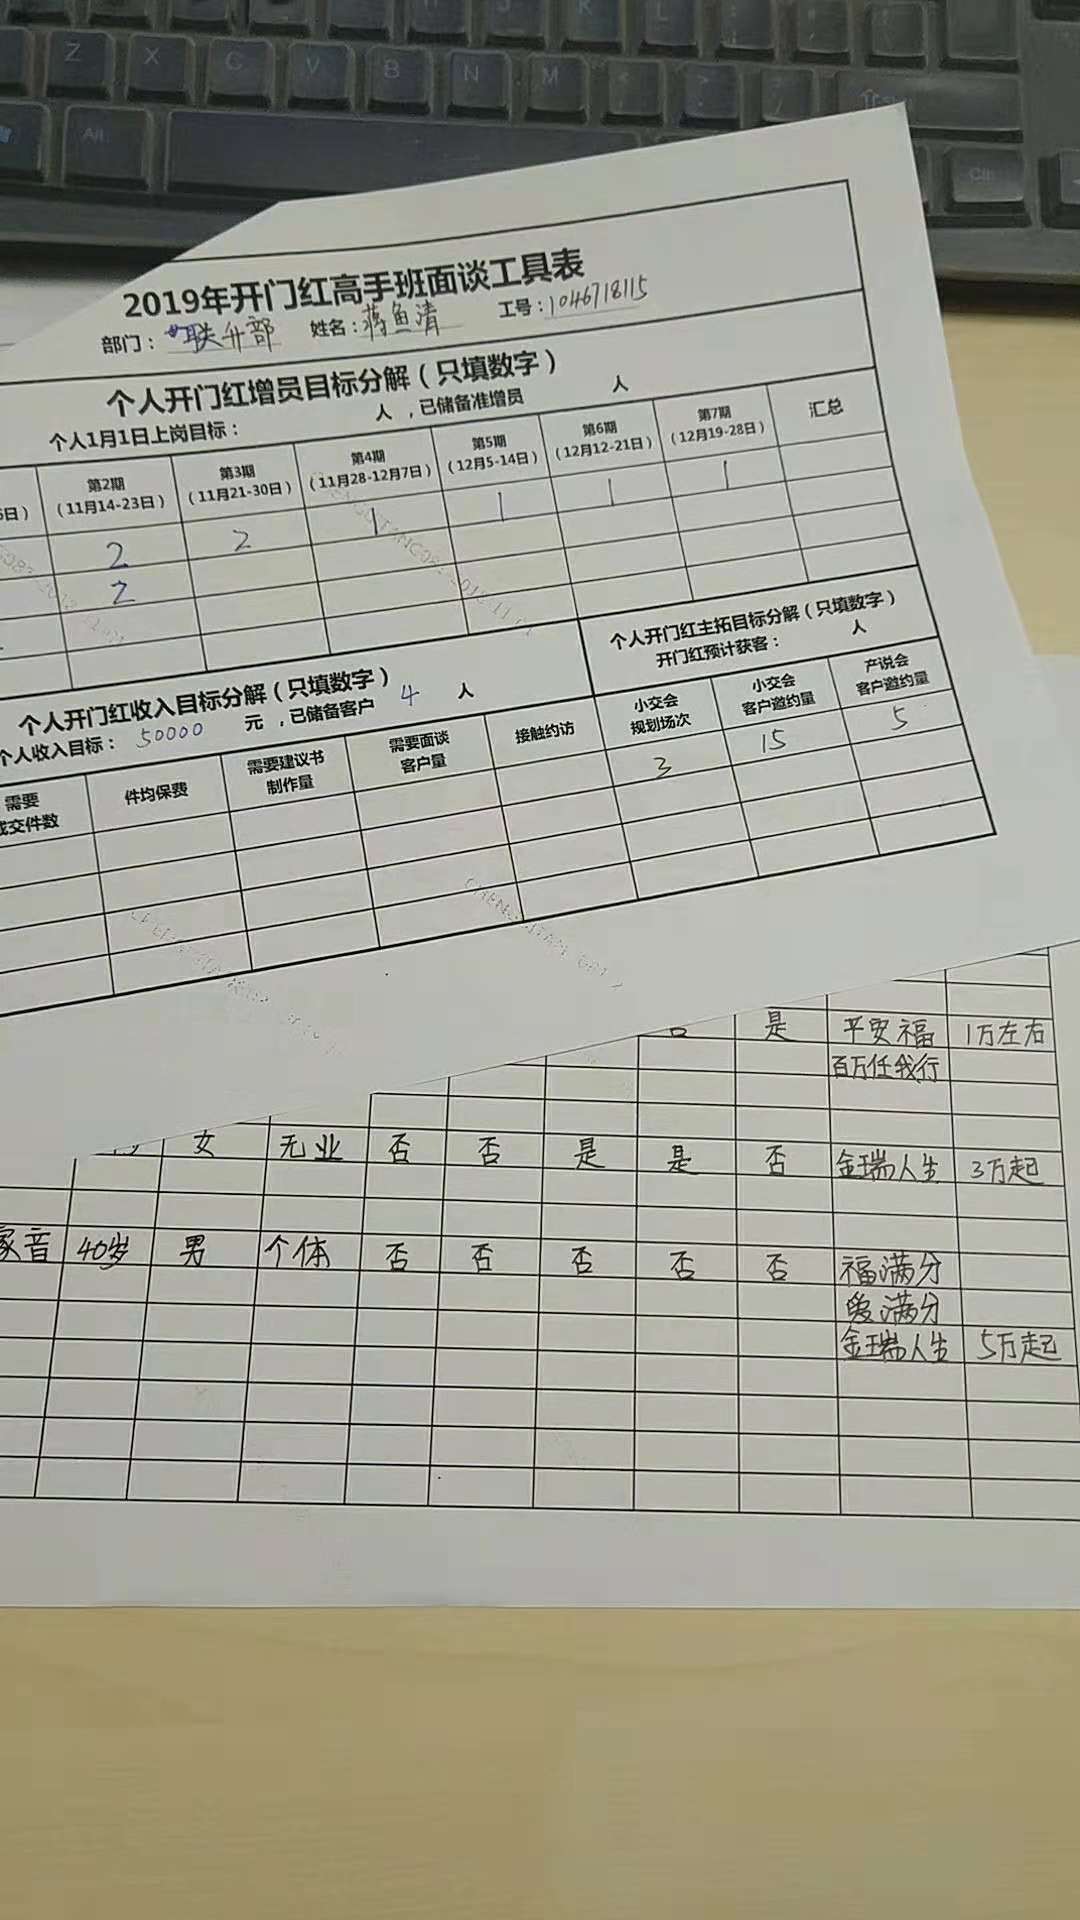 Z X C V B N M < > ? /
Alt
Ctrl
2019年开门红高手班面谈工具表
部门： 联升部 姓名：蒋鱼清 工号：1046718115
个人开门红增员目标分解（只填数字）
个人1月1日上岗目标： 人 ，已储备准增员 人
第2期 第3期 第4期 第5期 第6期 第7期 汇总
（11月14-23日） （11月21-30日） （11月28-12月7日） （12月5-14日） （12月12-21日） （12月19-28日）
2 2 1 1 1 1
2
个人开门红收入目标分解（只填数字）
个人收入目标： 50000 元 ，已储备客户 4 人
个人开门红主拓目标分解（只填数字）
开门红预计获客： 人
需要 件均保费 需要建议书 需要面谈 接触约访 小交会 小交会 产说会
成交件数 制作量 客户量 规划场次 客户邀约量 客户邀约量
3 15 5
否 是 平安福 1万左右
百万任我行
女 无业 否 否 是 是 否 金瑞人生 3万起
家音 40岁 男 个体 否 否 否 否 否 福满分
爱满分
金瑞人生 5万起